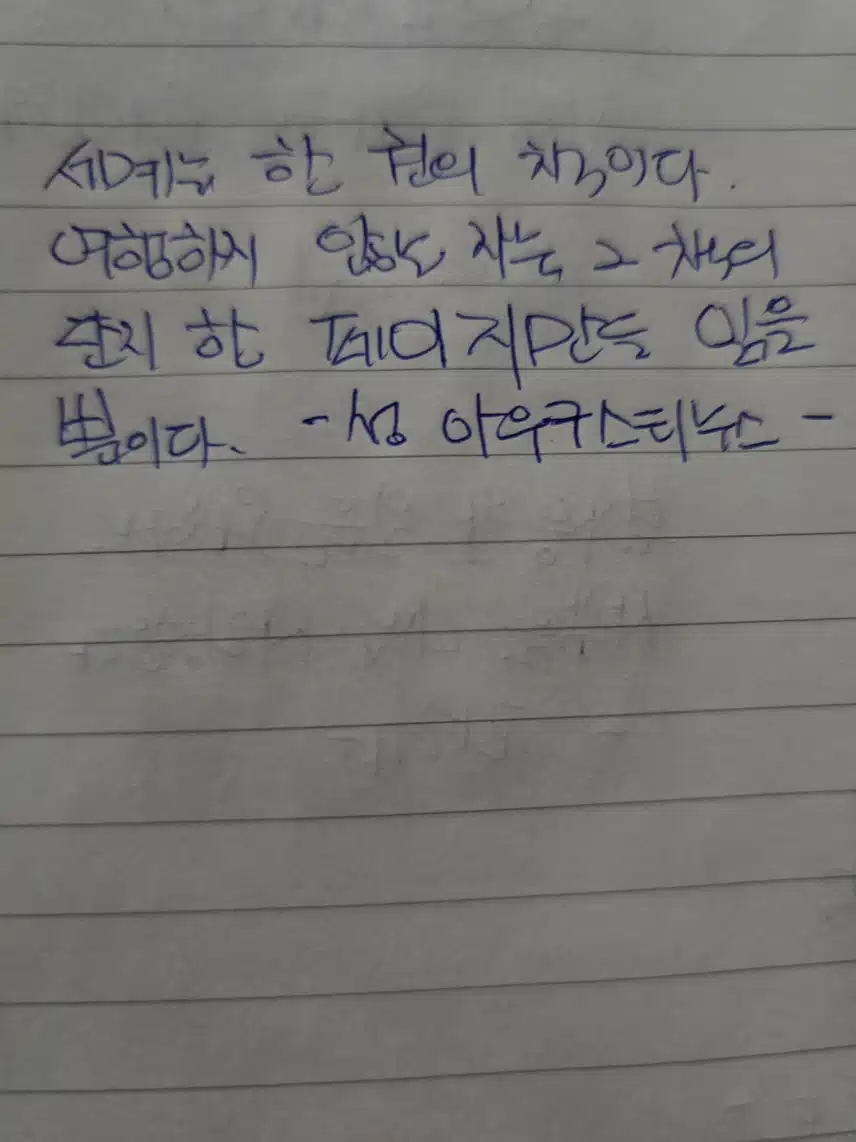 세계는 한 권의 책이다.
여행하지 않는 자는 그 책의
단지 한 페이지만을 읽을
뿐이다. - 성 아우구스티누스 -